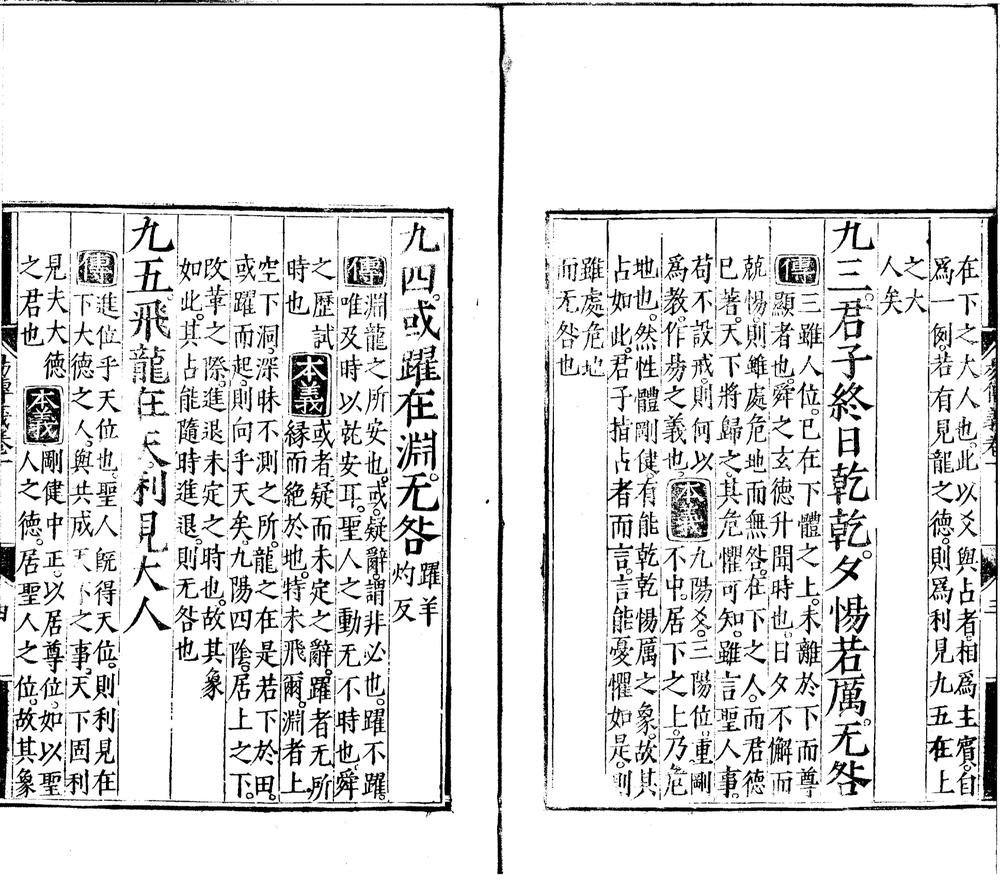 在下之大人也。此以爻與占者。相爲主賓。自
爲一例。若有見龍之德。則爲利見九五在上
之大
人矣
九三。君子終日乾乾。夕惕若厲。无咎
傳
三雖人位。已在下體之上。未離於下而尊
顯者也。舜之玄德升聞時也。日夕不懈而
兢惕則雖處危地而無咎。在下之人。而君德
已著。天下將歸之。其危懼可知。雖言聖人事。
苟不設戒。則何以
爲教。作易之義也。
本義
九陽爻。三陽位。重剛
不中。居下之上。乃危
地也。然性體剛健。有能乾乾惕厲之象。故其
占如此。君子指占者而言。言能憂懼如是。則
雖處危地
而无咎也
九四。或躍在淵。无咎
躍羊
灼反
傳
淵龍之所安也。或。疑辭。謂非必也。躍不躍。
唯及時以就安耳。聖人之動无不時也。舜
之歷試
時也
本義
或者。疑而未定之辭。躍者无所
緣而絕於地。特未飛爾。淵者上
空下洞。深昧不測之所。龍之在是若下於田。
或躍而起。則向乎天矣。九陽四陰。居上之下。
改革之際。進退未定之時也。故其象
如此。其占能隨時進退。則无咎也
九五。飛龍在天。利見大人
傳
進位乎天位也。聖人旣得天位。則利見在
下大德之人。與共成天下之事。天下固利
見夫大德
之君也
本義
剛健中正。以居尊位。如以聖
人之德。居聖人之位。故其象
四